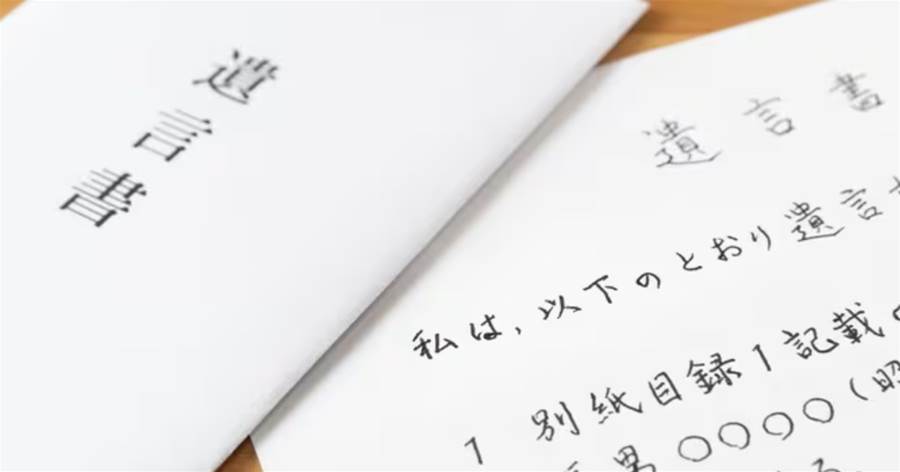 遺言書
遺言書
私は、以下のとおり遺言
1 別紙目録1記載
男 〇〇〇〇(昭